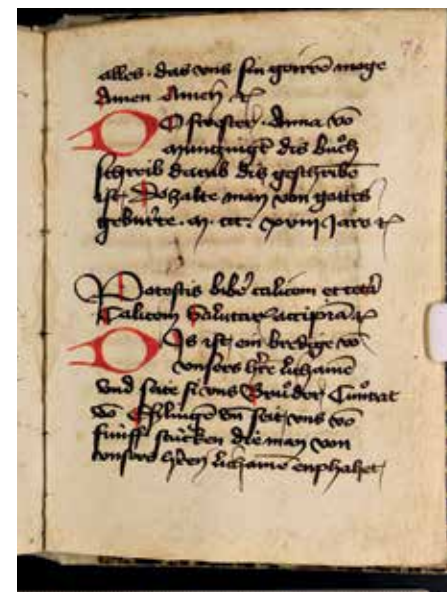 76
alles · das vns sin goirrē moge
Amen Amen ꝛc
Do swester · Anna vō
munczingē dis bůch
schreib darab dis geschribē
ist Do zalte man von gottes
gebürte · m · ccc · xviij Jare ꝛc
Potestis biberͤ calicem et ceterͣ
Calicem Salutarͣ accipiā ꝛc
Dis ist ein bredige vō
vnsers hr̄e lichame
vnd seite si vns Brůder Cůnrat
vō Esslingē vn̄ seit vns vō
fünff stücken die man von
vnsers hr̄en lichamē enphahet